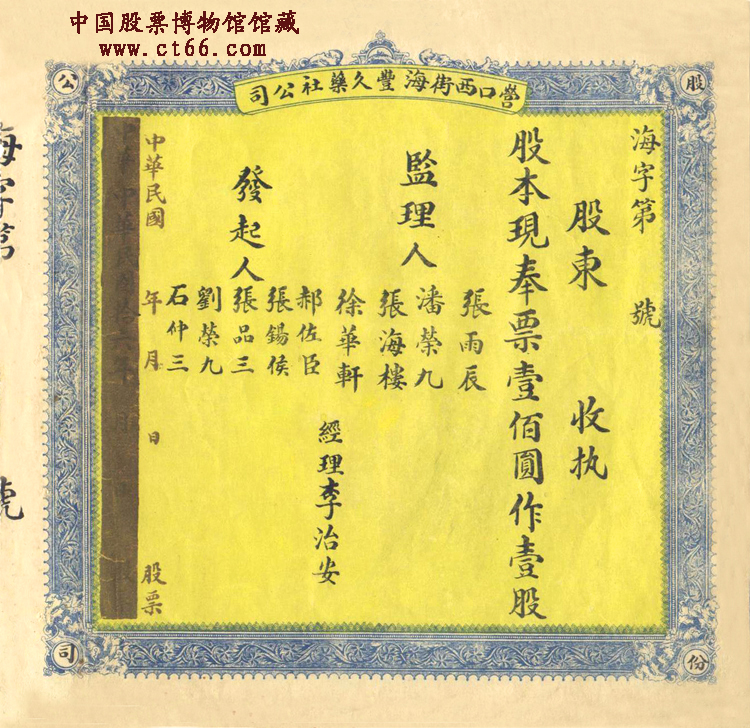 中国股票博物馆馆藏
www.ct66.com
營口西街海豐久藥社公司
股份公司
海字第 號
股東 收执
股本現奉票壹佰圓作壹股
監理人
張雨辰
潘榮九
張海樓
徐華軒
發起人
郝佐臣
張錫侯
張品三
劉榮九
石仲三
經理李治安
中華民國 年 月 日 股票
海字第 號